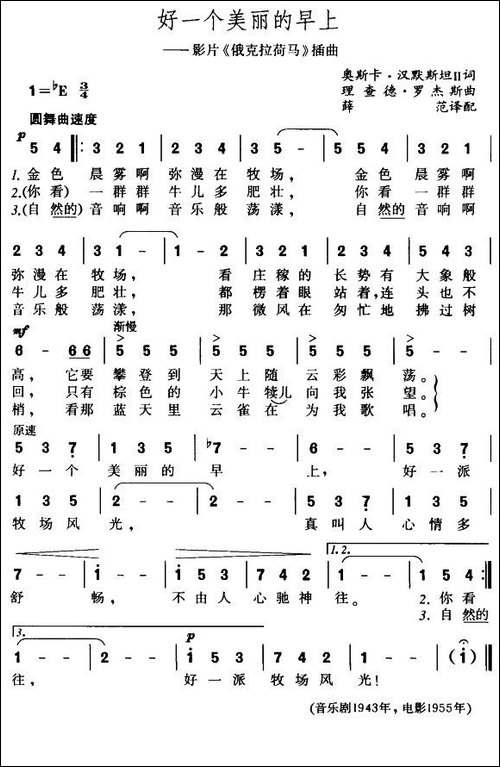 好一个美丽的早上
——影片《俄克拉荷马》插曲
奥斯卡·汉默斯坦II词
1=♭E 3/4 理查德·罗杰斯曲
薛 范译配
圆舞曲速度
p
5 4 ‖: 3 2 1 | 3 2 1 | 5 - - | 5 - 5 | 5 5 4 | 3 2 1 |
1. 金色 晨雾啊 弥漫在 牧场, 金色晨雾啊
2.(你看)一群群 牛儿多 肥壮, 你看一群群
3.(自然的)音响啊 音乐般 荡漾, 自然的音响啊
2 3 4 | 3 - 1 | 1 - - | 1 - 2 | 3 2 3 | 4 3 4 | 5 4 3 |
弥漫在 牧场, 看 庄稼的 长势有 大象般
牛儿多 肥壮, 都 楞着眼 站着,连 头也不
音乐般 荡漾, 那 微风在 匆忙地 拂过树
mf 渐慢
6 - 66 | 5 5 5 | 5 5 5 | 5 5 5 |
高, 它要 攀登到 天上随 云彩飘 荡。
回, 只有 棕色的 小牛犊儿 向我张 望。
梢, 看那 蓝天里 云雀在 为我歌 唱。
原速
5 3 7 | 1 5 3 | ♭7 - - | 6 - - | 5 3 7 |
好一个 美丽的 早 上, 好一派
1 3 5 | 2 - - | 2 - - | 5 3 7 | 1 5 3 |
牧场风 光, 真叫人 心情多
1. 2.
7 - - | 1 - - | 1 5 3 | 7 4 2 | 1 - - | 1 5 4 :‖
舒 畅, 不由人 心驰神 往。 2. 你看
3. 自然的
3. p
1 - - | 2 - - | 1 5 3 | 7 4 2 | 1 - - | - (1) ‖
往, 好一派 牧场风 光!
(音乐剧1943年,电影1955年)